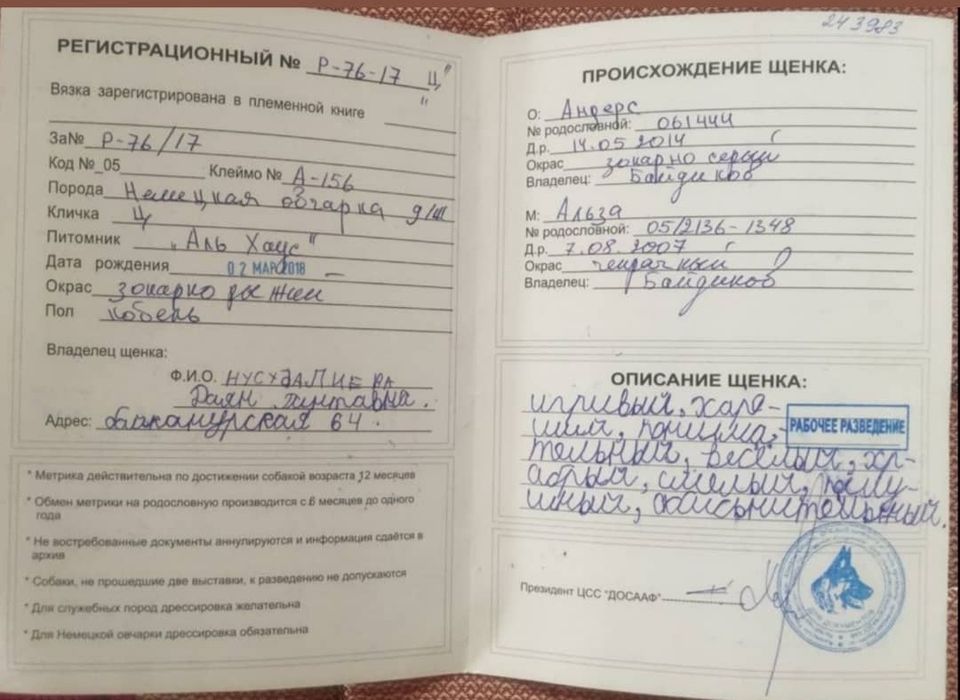 РЕГИСТРАЦИОННЫЙ № Р-76-17 "Ц"
Вязка зарегистрирована в племенной книге
За№ Р-76/17
Код №_05 Клеймо № А-156
Порода Немецкая овчарка д/ш
Кличка Ц
Питомник "Аль Хаус"
Дата рождения 02 МАР 2018
Окрас зонарно рыжий
Пол кобель
Владелец щенка:
Ф.И.О.
Даян
Адрес: 64.
* Метрика действительна по достижении собакой возраста 12 месяцев
* Обмен метрики на родословную производится с 6 месяцев до одного
года
* Не востребованные документы аннулируются и информация сдаётся в
архив
* Собаки, не прошедшие две выставки, к разведению не допускаются
* Для служебных пород дрессировка желательна
* Для Немецкой овчарки дрессировка обязательна
243983
ПРОИСХОЖДЕНИЕ ЩЕНКА:
О: Андерс
№ родословной: 061444
Д.р. 14.05 2014
Окрас зонарно серый
Владелец: Байдиков
М: Альза
№ родословной: 05/2136-1348
Д.р. 7.08.2007
Окрас чепрачный
Владелец: Байдиков
ОПИСАНИЕ ЩЕНКА:
игривый, харо-
ший, понима-
РАБОЧЕЕ РАЗВЕДЕНИЕ
тельный, весёлый, хр-
абрый, смелый,

Президент ЦСС "ДОСААФ"